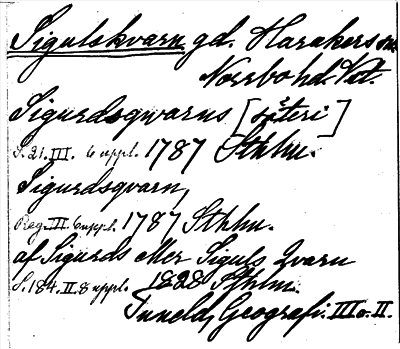 Sigulskvarn gd. Harakers sn.
Norrbo hd. Vst.
Sigurdsqwarns [säteri]
S. 21. III. 6 uppl. 1787 Sthlm.
Sigurdsqvarn,
Reg. III. 6 uppl. 1787 Sthlm.
af Sigurds eller Siguls Qvarn
S. 184. II. 8 uppl. 1828 Sthlm.
Tuneld, Geografi. III o. II.